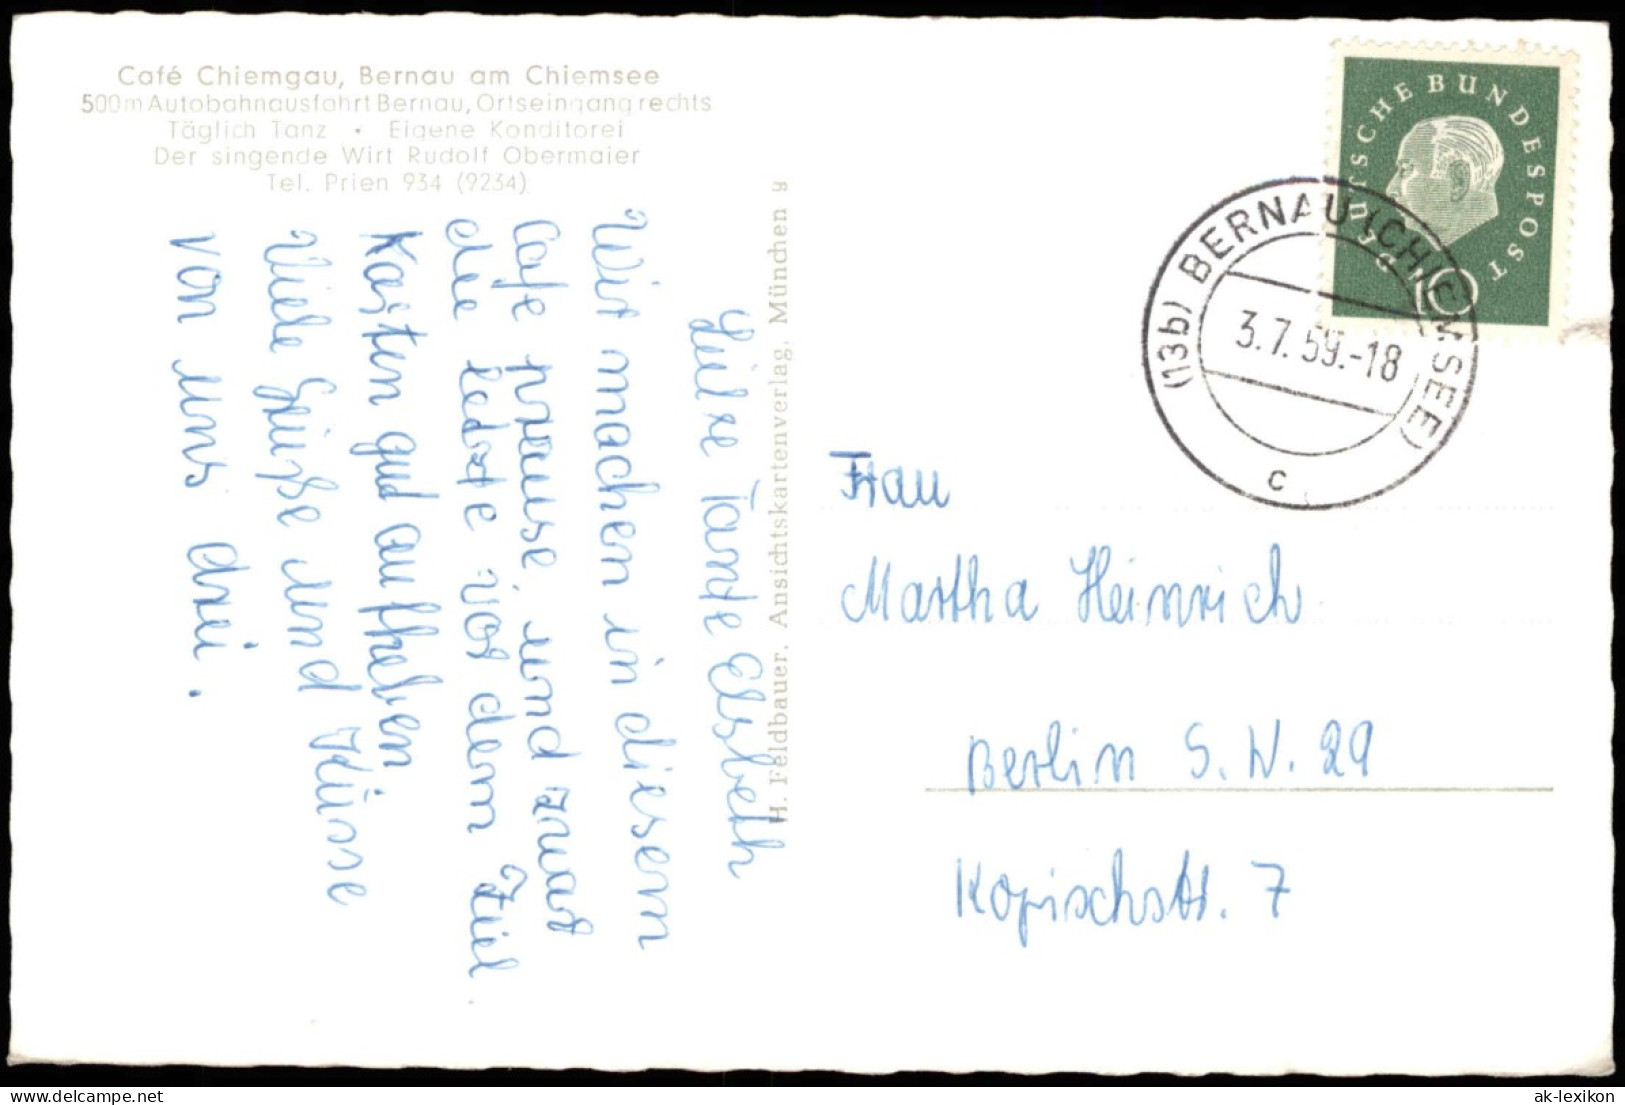 Café Chiemgau, Bernau am Chiemsee
500m Autobahnausfahrt Bernau, Ortseingang rechts
Täglich Tanz • Eigene Konditorei
Der singende Wirt Rudolf Obermaier
Tel. Prien 934 (9234)
Liebe Tante Elsbeth
Wir machen in diesem
Cafe pause, und zwar
die letzte vor dem Ziel
Karten gut aufheben
Viele Grüße und Küsse
von uns drei.
H. Feldbauer, Ansichtskartenverlag, München 9
DEUTSCHE BUNDESPOST
(13b) BERNAU (CHIEMSEE)
3.7.59.-18
c
Frau
Martha Heinrich
Berlin S.W. 29
Kopischstr. 7
ak-lexikon